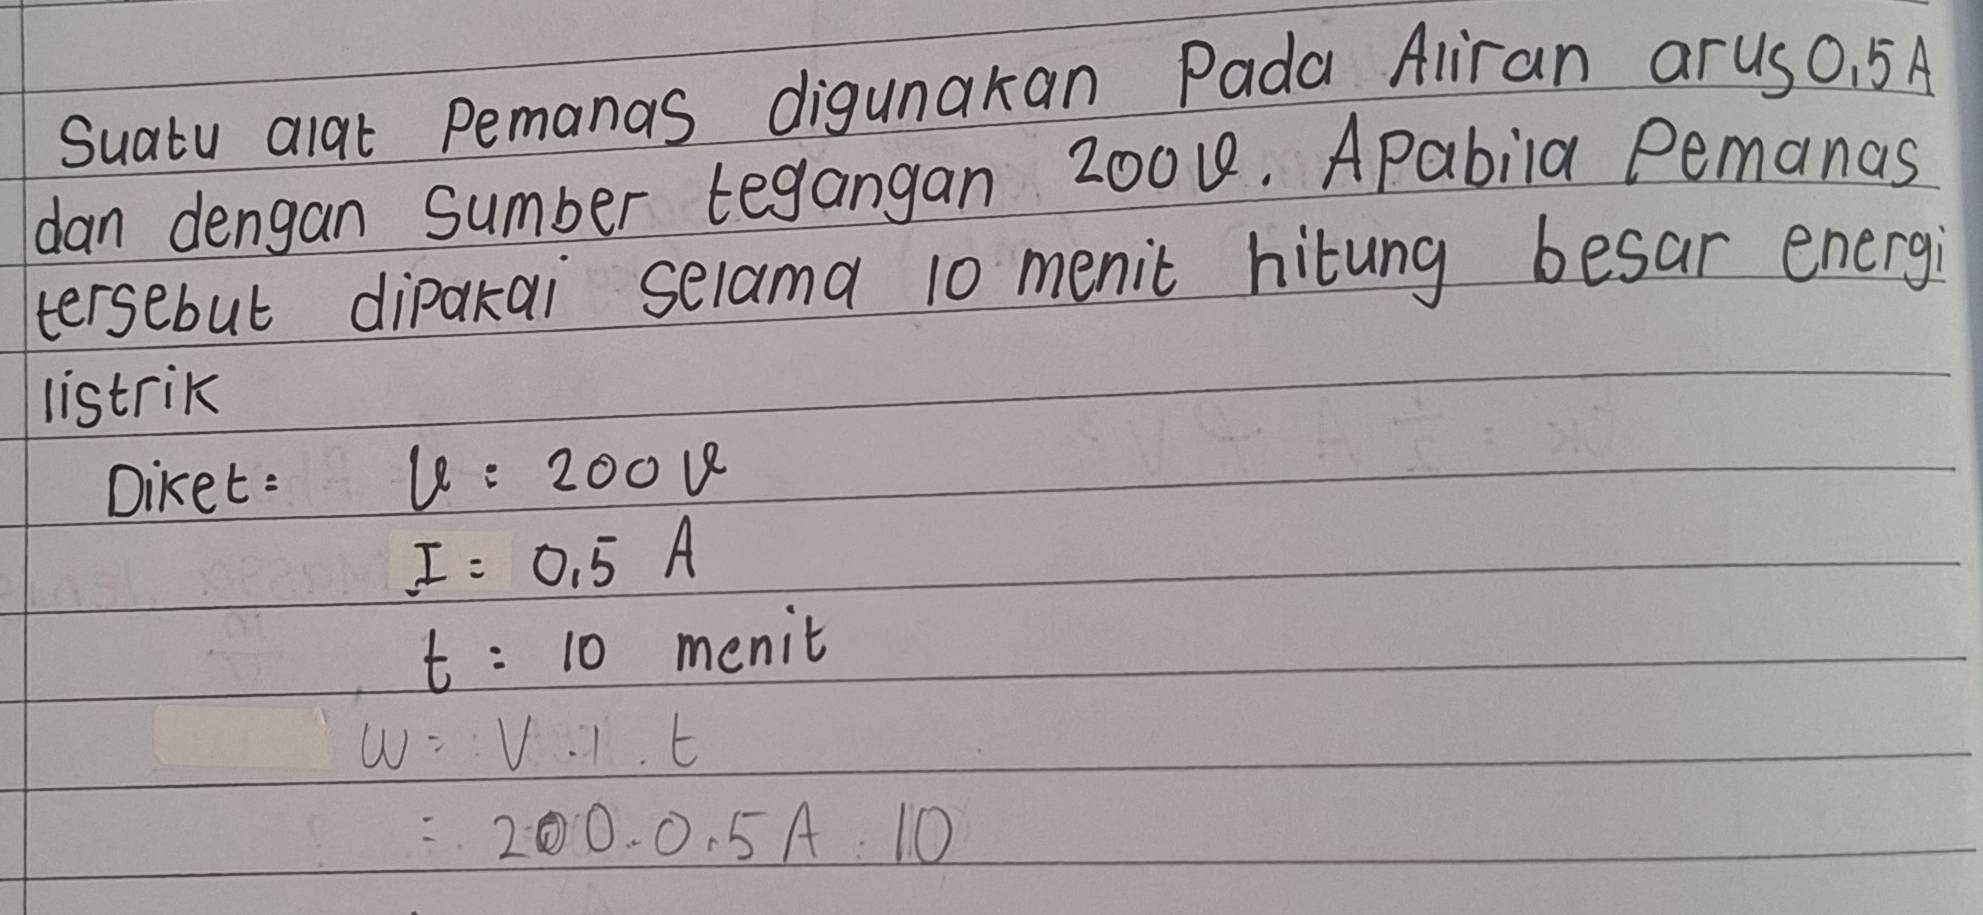 Suatu alat Pemanas digunakan Pada Aliran arus 0,5 A
dan dengan Sumber tegangan 200 V. Apabila Pemanas
tersebut dipakai selama 10 menit hitung besar energi
listrik
Diket = V = 200 V
I = 0,5 A
t = 10 menit
W = V . I . t
= 200 . 0,5 A . 10